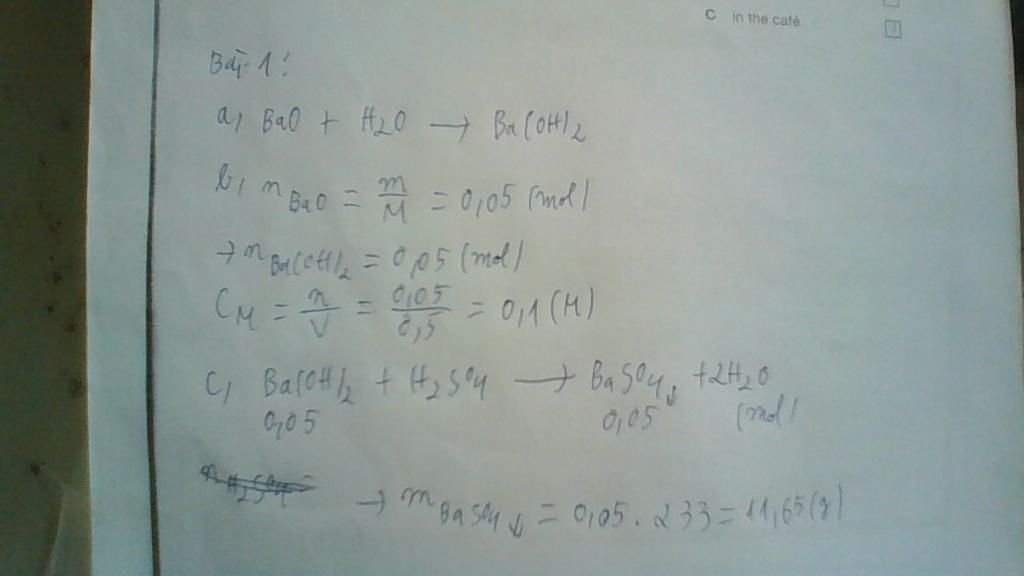 C in the café.
Bài 1:
a, BaO + H2O → Ba(OH)2
b, nBaO = m/M = 0,05 (mol)
→ nBa(OH)2 = 0,05 (mol)
CM = n/V = 0,05/0,5 = 0,1 (M)
c, Ba(OH)2 + H2SO4 → BaSO4↓ + 2H2O
0,05 0,05 (mol)
→ mBaSO4↓ = 0,05 . 233 = 11,65 (g)